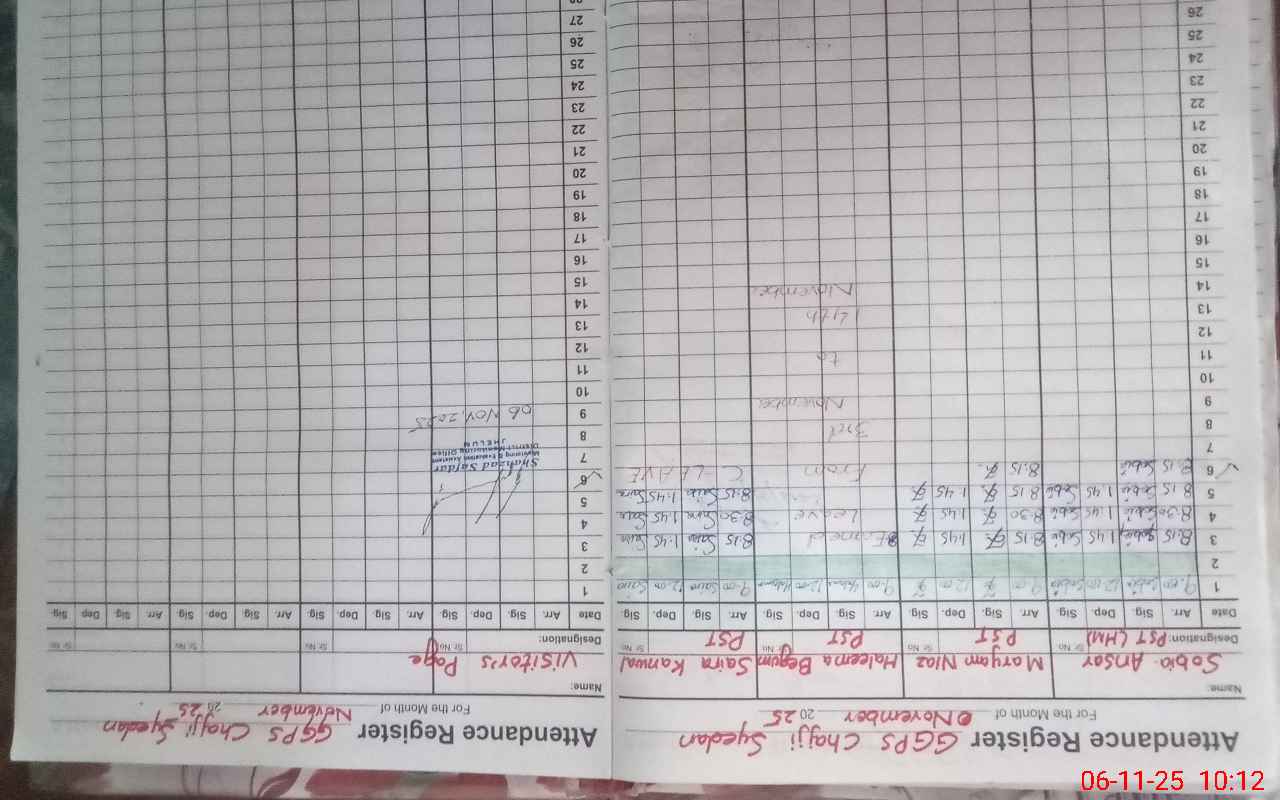 Attendance Register GGPS Chajji Syedan
For the Month of November 20 25
Name:
Sobia Ansar Maryam Niaz Haleema Begum Saira Kanwal
Designation: PST (HM) Sr. No PST Sr. No PST Sr. No PST Sr. No
Date Arr. Sig Dep. Sig Arr. Sig Dep. Sig Arr. Sig Dep. Sig Arr. Sig Dep. Sig
1 9.00 12.00 9.00 12.00 9.00 12.00 9.00 Saira 12.00 Saira
2
3 8:15 1:45 8:15 1:45 Earned 8:15 Saira 1:45 Saira
4 8:30 1:45 8:30 1:45 Leave 8:30 Saira 1:45 Saira
5 8:15 1:45 8:15 1:45 8:15 Saira 1:45 Saira
6 8:15 8:15 From C-LEAVE
7
8 3rd
9 November
10
11 to
12
13 14th
14 November
15
16
17
18
19
20
21
22
23
24
25
26
Attendance Register GGPS Chajji Syedan
For the Month of November 20 25
Name:
Visitor's Page
Designation: Sr. No Sr. No Sr. No
Date Arr. Sig Dep Sig Arr. Sig Dep. Sig Arr. Sig Dep. Sig Arr. Sig Dep Sig
1
2
3
4
5
6
7 Shahzad Safdar
Monitoring & Evaluation Assistant
District Monitoring Office
8 JHELUM
9 06 NOV. 2025
10
11
12
13
14
15
16
17
18
19
20
21
22
23
24
25
26
27
28
06-11-25 10:12